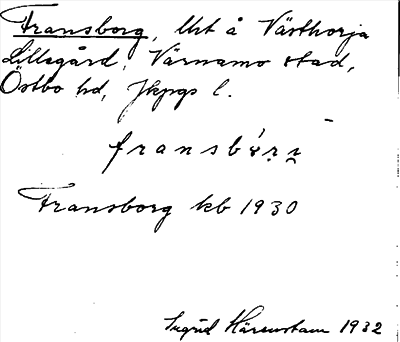 Fransborg, lht å Västhorja
Lillegård, Värnamo stad,
Östbo hd, Jkpgs l.
Fransborg kb 1930
Ingrid Härenstam 1932